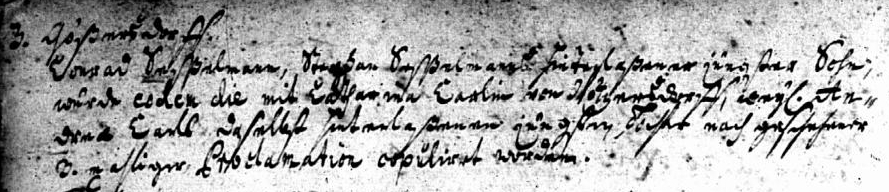 3.
Conrad Seßelmann, Stephan Seßelmanns hinterlaßener jüngster Sohn,
wurde eodem die mit Catharina Carlin von
drea Carls daselbst hinterlaßenen jüngsten Tochter nach geschehener
3. mahliger Proclamation copulirt worden.